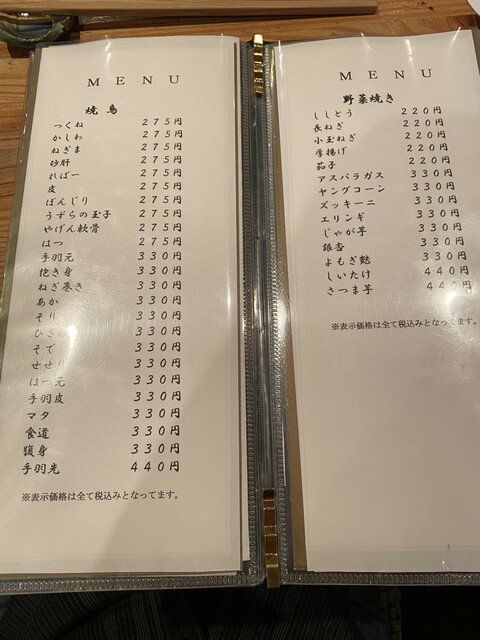 MENU
焼鳥
つくね 275円
かしわ 275円
ねぎま 275円
砂肝 275円
ればー 275円
皮 275円
ぼんじり 275円
うずらの玉子 275円
やげん軟骨 275円
はつ 275円
手羽元 330円
抱き身 330円
ねぎ巻き 330円
あか 330円
そり 330円
330円
そで 330円
せせり 330円
はつ元 330円
手羽皮 330円
マタ 330円
食道 330円
腹身 330円
手羽先 440円
※表示価格は全て税込みとなってます。
MENU
野菜焼き
ししとう 220円
長ねぎ 220円
小玉ねぎ 220円
厚揚げ 220円
茄子 220円
アスパラガス 330円
ヤングコーン 330円
ズッキーニ 330円
エリンギ 330円
じゃが芋 330円
銀杏 330円
よもぎ麩 330円
しいたけ 440円
さつま芋 440円
※表示価格は全て税込みとなってます。